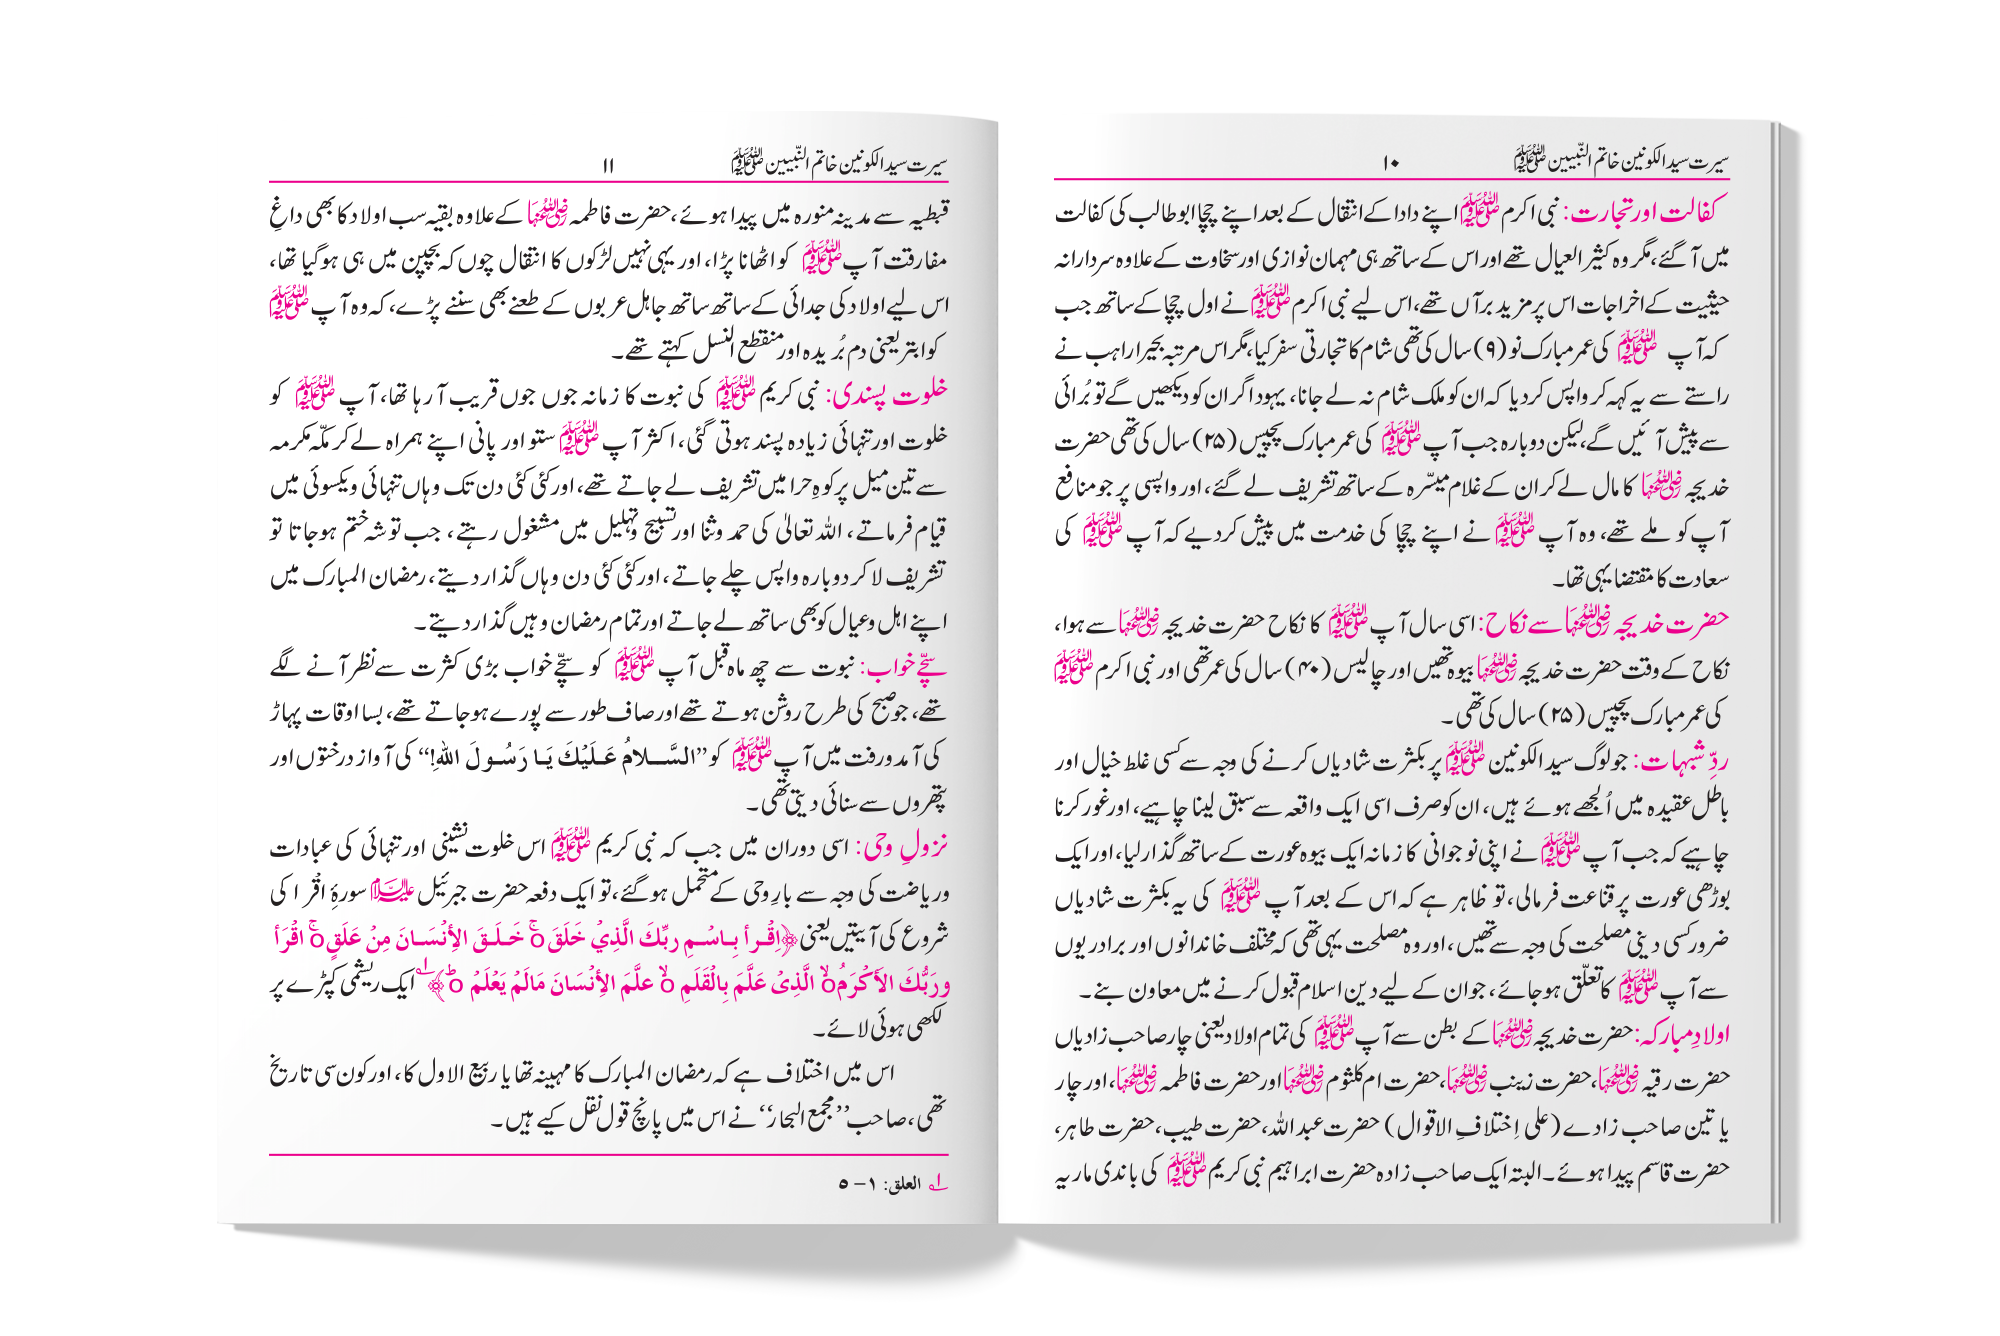 سیرت سید الکونین خاتم النّبیین ﷺ ۱۰
کفالت اور تجارت: نبی اکرم ﷺ اپنے دادا کے انتقال کے بعد اپنے چچا ابوطالب کی کفالت
میں آگئے، مگر وہ کثیر العیال تھے اور اس کے ساتھ ہی مہمان نوازی اور سخاوت کے علاوہ سردارانہ
حیثیت کے اخراجات اس پر مزید برآں تھے، اس لیے نبی اکرم ﷺ نے اول چچا کے ساتھ جب
کہ آپ ﷺ کی عمر مبارک نو (۹) سال کی تھی شام کا تجارتی سفر کیا، مگر اس مرتبہ بحیرا راہب نے
راستے سے یہ کہہ کر واپس کردیا کہ ان کو ملک شام نہ لے جانا، یہود اگر ان کو دیکھیں گے تو بُرائی
سے پیش آئیں گے، لیکن دوبارہ جب آپ ﷺ کی عمر مبارک پچیس (۲۵) سال کی تھی حضرت
خدیجہ رضی اللہ عنہا کا مال لے کر ان کے غلام میسّرہ کے ساتھ تشریف لے گئے، اور واپسی پر جو منافع
آپ کو ملے تھے، وہ آپ ﷺ نے اپنے چچا کی خدمت میں پیش کردیے کہ آپ ﷺ کی
سعادت کا مقتضا یہی تھا۔
حضرت خدیجہ رضی اللہ عنہا سے نکاح: اسی سال آپ ﷺ کا نکاح حضرت خدیجہ رضی اللہ عنہا سے ہوا،
نکاح کے وقت حضرت خدیجہ رضی اللہ عنہا بیوہ تھیں اور چالیس (۴۰) سال کی عمر تھی اور نبی اکرم ﷺ
کی عمر مبارک پچیس (۲۵) سال کی تھی۔
ردِّ شبہات: جو لوگ سید الکونین ﷺ پر بکثرت شادیاں کرنے کی وجہ سے کسی غلط خیال اور
باطل عقیدہ میں اُلجھے ہوئے ہیں، ان کو صرف اسی ایک واقعہ سے سبق لینا چاہیے، اور غور کرنا
چاہیے کہ جب آپ ﷺ نے اپنی نوجوانی کا زمانہ ایک بیوہ عورت کے ساتھ گذار لیا، اور ایک
بوڑھی عورت پر قناعت فرمالی، تو ظاہر ہے کہ اس کے بعد آپ ﷺ کی یہ بکثرت شادیاں
ضرور کسی دینی مصلحت کی وجہ سے تھیں، اور وہ مصلحت یہی تھی کہ مختلف خاندانوں اور برادریوں
سے آپ ﷺ کا تعلّق ہوجائے، جو ان کے لیے دین اسلام قبول کرنے میں معاون بنے۔
اولادِ مبارکہ: حضرت خدیجہ رضی اللہ عنہا کے بطن سے آپ ﷺ کی تمام اولاد یعنی چار صاحب زادیاں
حضرت رقیہ رضی اللہ عنہا، حضرت زینب رضی اللہ عنہا، حضرت ام کلثوم رضی اللہ عنہا اور حضرت فاطمہ رضی اللہ عنہا، اور چار
یا تین صاحب زادے (علی اِختلافِ الاقوال) حضرت عبداللہ، حضرت طیب، حضرت طاہر،
حضرت قاسم پیدا ہوئے۔ البتہ ایک صاحب زادہ حضرت ابراہیم نبی کریم ﷺ کی باندی ماریہ
سیرت سید الکونین خاتم النّبیین ﷺ ۱۱
قبطیہ سے مدینہ منورہ میں پیدا ہوئے، حضرت فاطمہ رضی اللہ عنہا کے علاوہ بقیہ سب اولاد کا بھی داغِ
مفارقت آپ ﷺ کو اٹھانا پڑا، اور یہی نہیں لڑکوں کا انتقال چوں کہ بچپن میں ہی ہوگیا تھا،
اس لیے اولاد کی جدائی کے ساتھ ساتھ جاہل عربوں کے طعنے بھی سننے پڑے، کہ وہ آپ ﷺ
کو ابتر یعنی دم بُریدہ اور منقطع النسل کہتے تھے۔
خلوت پسندی: نبی کریم ﷺ کی نبوت کا زمانہ جوں جوں قریب آرہا تھا، آپ ﷺ کو
خلوت اور تنہائی زیادہ پسند ہوتی گئی، اکثر آپ ﷺ ستو اور پانی اپنے ہمراہ لے کر مکّہ مکرمہ
سے تین میل پر کوہِ حرا میں تشریف لے جاتے تھے، اور کئی کئی دن تک وہاں تنہائی ویکسوئی میں
قیام فرماتے، اللہ تعالیٰ کی حمد وثنا اور تسبیح وتہلیل میں مشغول رہتے، جب توشہ ختم ہوجاتا تو
تشریف لاکر دوبارہ واپس چلے جاتے، اور کئی کئی دن وہاں گذار دیتے، رمضان المبارک میں
اپنے اہل وعیال کو بھی ساتھ لے جاتے اور تمام رمضان وہیں گذار دیتے۔
سچّے خواب: نبوت سے چھ ماہ قبل آپ ﷺ کو سچّے خواب بڑی کثرت سے نظر آنے لگے
تھے، جو صبح کی طرح روشن ہوتے تھے اور صاف طور سے پورے ہوجاتے تھے، بسا اوقات پہاڑ
کی آمد ورفت میں آپ ﷺ کو ’’السَّلامُ عَلَيْكَ يَا رَسُولَ اللهِ!‘‘ کی آواز درختوں اور
پتھروں سے سنائی دیتی تھی۔
نزولِ وحی: اسی دوران میں جب کہ نبی کریم ﷺ اس خلوت نشینی اور تنہائی کی عبادات
وریاضت کی وجہ سے بارِ وحی کے متحمل ہوگئے، تو ایک دفعہ حضرت جبرئیل علیہ السلام سورۂ اقْرا کی
شروع کی آیتیں یعنی ﴿اِقْرأ بِاسْمِ ربِّكَ الَّذِيْ خَلَقَ ۝ۚ خَلَقَ الأِنْسَانَ مِنْ عَلَقٍ ۝ۚ اقْرَأ
ورَبُّكَ الأَكْرَمُ ۝ۙ الَّذِيْ عَلَّمَ بِالْقَلَمِ ۝ۙ علَّمَ الأِنْسَانَ مَالَمْ يَعْلَمْ ۝ؕ﴾ ۱ ایک ریشمی کپڑے پر
لکھی ہوئی لائے۔
اس میں اختلاف ہے کہ رمضان المبارک کا مہینہ تھا یا ربیع الاول کا، اور کون سی تاریخ
تھی، صاحب ’’مجمع البحار‘‘ نے اس میں پانچ قول نقل کیے ہیں۔
۱ العلق: ۱ – ۵